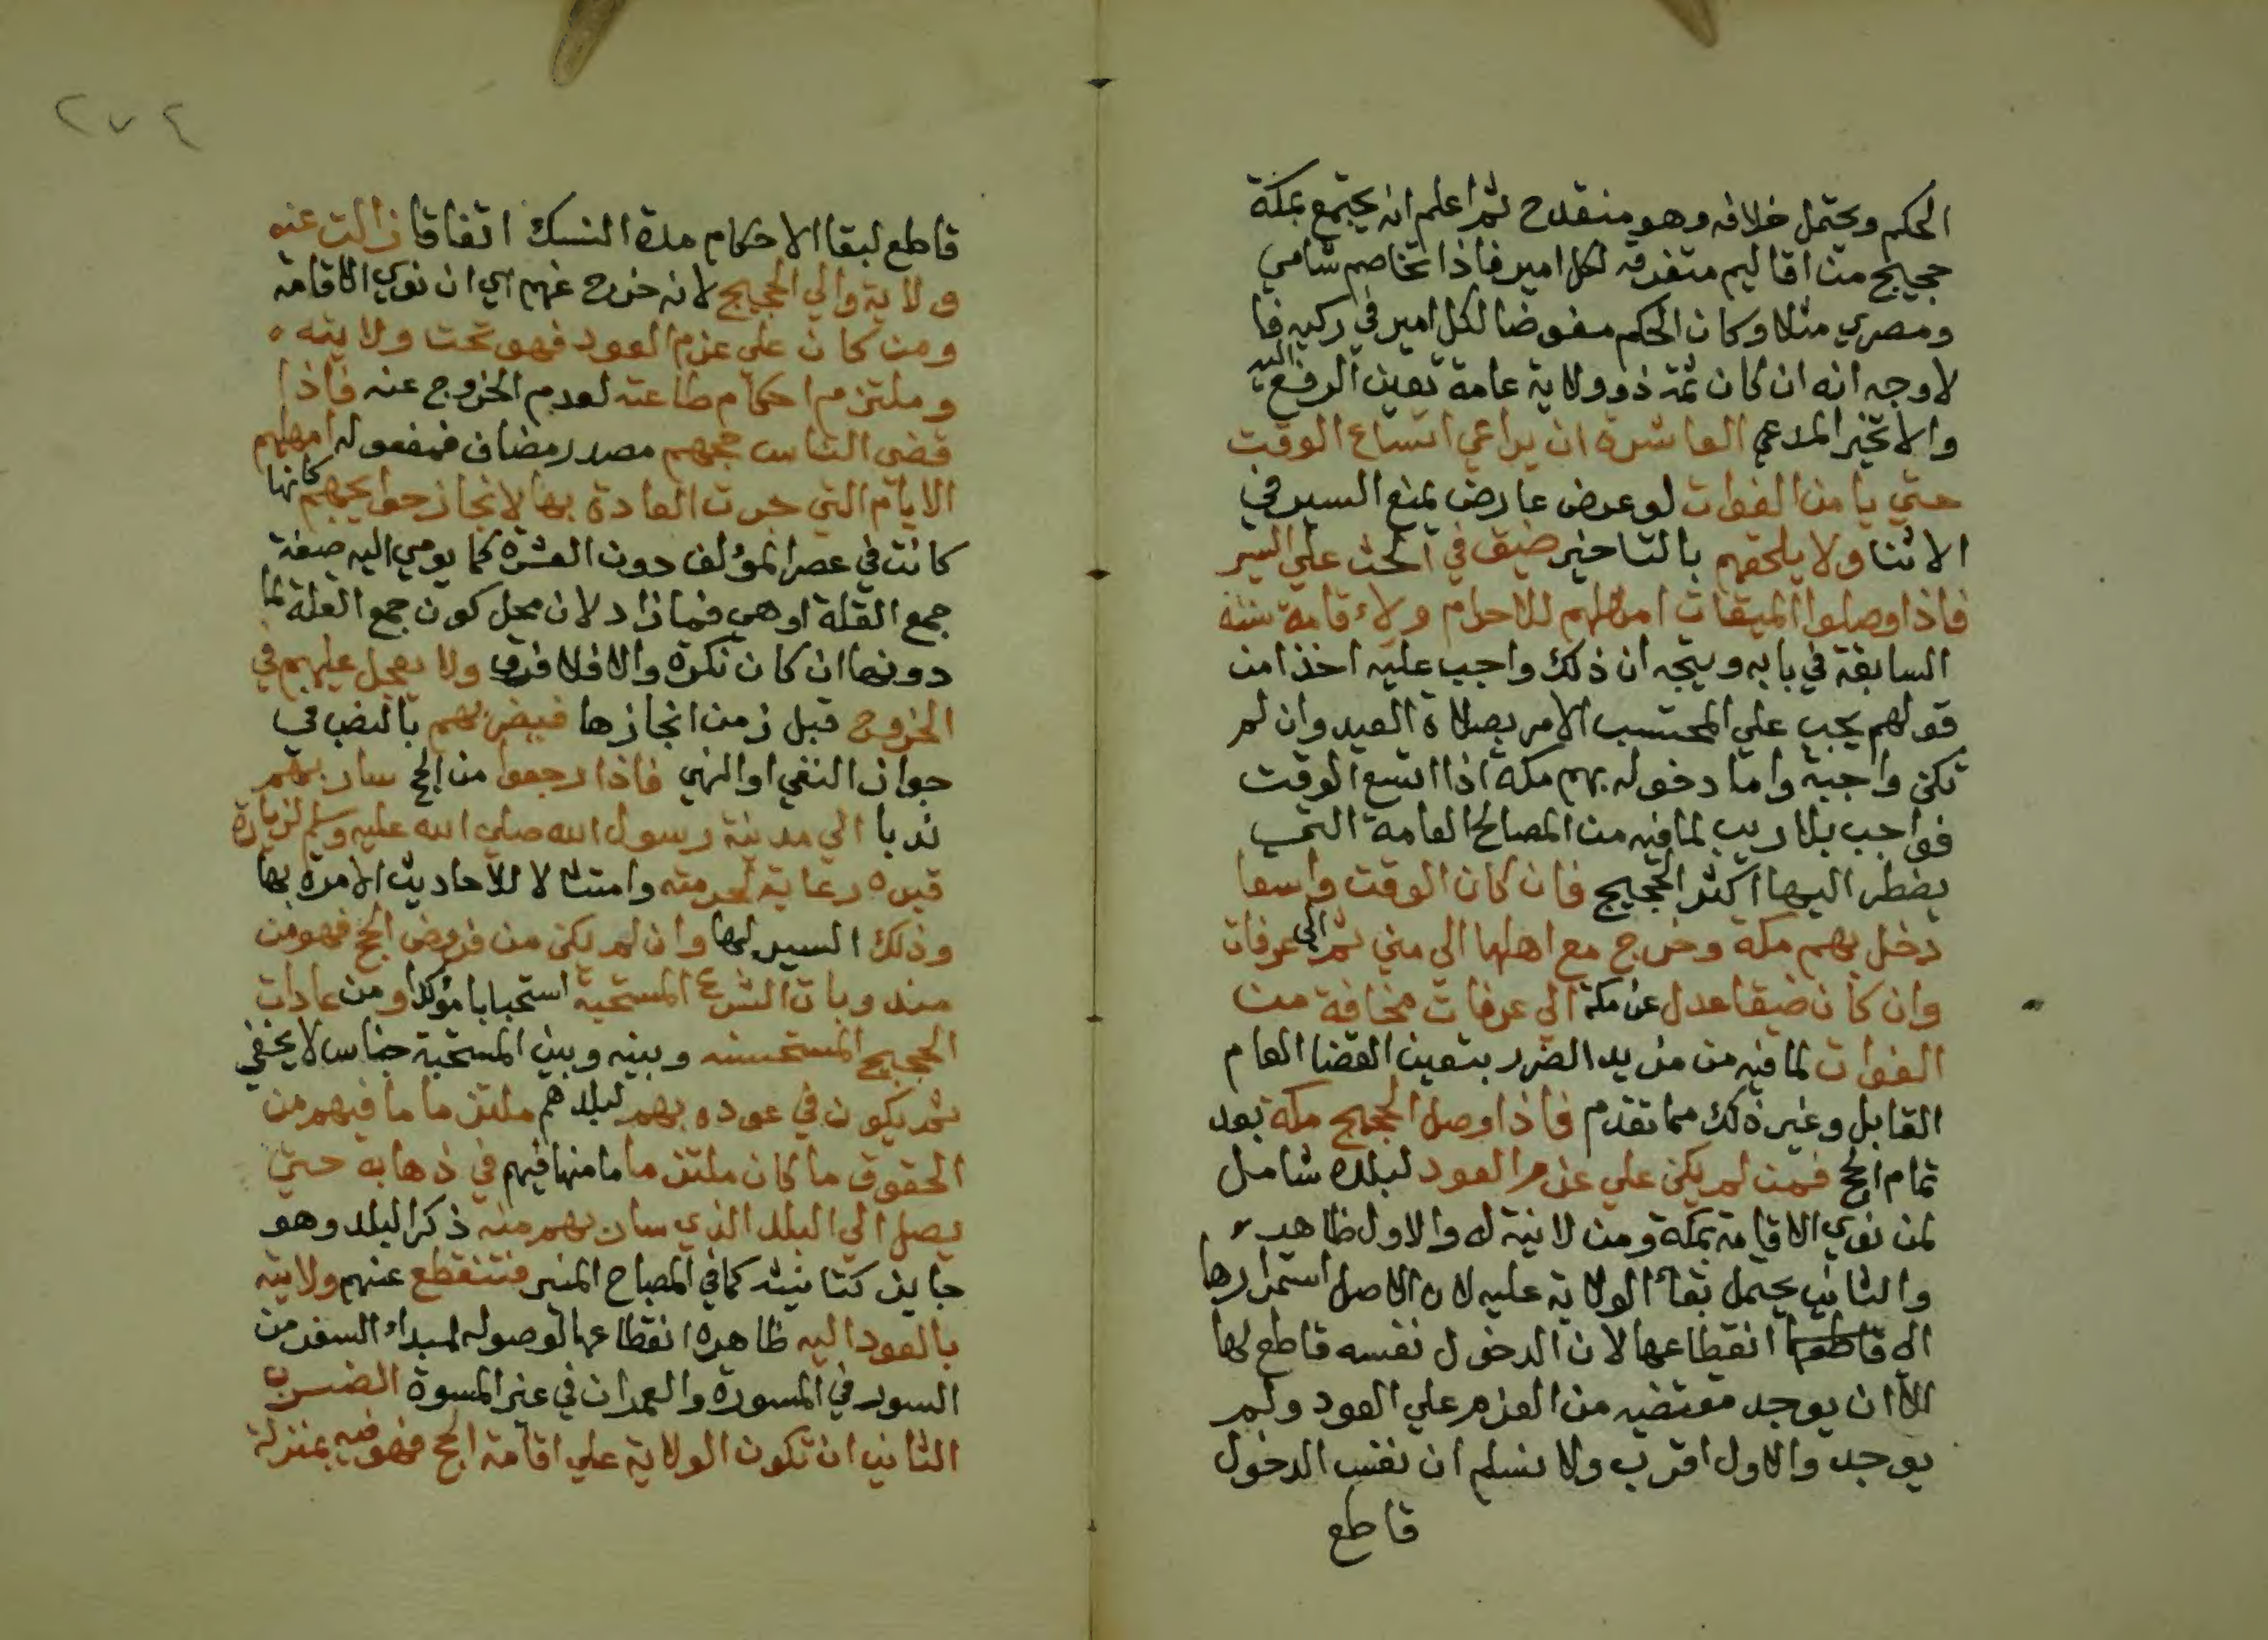 الحكم ويحتمل خلافه وهو منقدح ثم اعلم انه يجتمع بمكة
حجيج من اقاليم متفرقه لكل امير فاذا تخاصم شامي
ومصري مثلا وكان الحكم مفوضا لكل امير في ركبه فا
لاوجه انه ان كان ثمة ذو ولاية عامة تعين الرفع اليه
والا تخير المدعي العاشرة ان يراعي اتساع الوقت
حتي يا من الفوات لو عرض عارض يمنع السير في
الاثنا ولا يلحقهم بالتاخير ضيق في الحث علي السير
فاذا وصلوا الميقات امهلهم للاحرام ولاءقامة سننه
السابقة في بابه ويتجه ان ذلك واجب عليه اخذا من
قولهم يجب علي المحتسب الامر بصلاة العيد وان لم
تكن واجبة واما دخوله بهم مكة اذا اتسع الوقت
فواجب بلا ريب لما فيه من المصالح العامة التي
يضطر اليها اكثر الحجيج فان كان الوقت واسعا
دخل بهم مكة وخرج مع اهلها الي مني ثم الي عرفات
وان كان ضيقا عدل عن مكة الي عرفات مخافة من
الفوات لما فيه من مزيد الضرر بتعين القضا العام
القابل وغير ذلك مما تقدم فاذا وصل الحجيج مكة بعد
تمام الحج فمن لم يكن علي عزم العود لبلده شامل
لمن نوي الاقامة بمكة ومن لا نية له والاول ظاهر
والثاني يحتمل بقاء الولاية عليه لان الاصل استمرارها
الي انقطاعها لان الدخول نفسه قاطع لها
الا ان يوجد مقتضيه من العزم علي العود ولم
يوجد والاول اقرب ولا نسلم ان نفس الدخول
قاطع
٢٧٤
قاطع لبقا الاحكام مدة النسك اتفاقا زالت عنه
ولاية والي الحجيج لانه خرج عنهم اي ان نوي الاقامة
ومن كان علي عزم العود فهو تحت ولايته
وملتزم احكام طاعته لعدم الخروج عنه فاذا
قضي الناس حجهم مصدر مضاف لمفعوله امهلهم
الايام التي جرت العادة بها لانجاز حوايجهم كانها
كانت في عصر المؤلف دون العشرة كما يومي اليه صيغة
جمع القلة او هي فما زاد لان محل كون جمع القلة لما
دونها ان كان نكرة والا فلا فرق ولا يعجل عليهم في
الخروج قبل زمن انجازها فيضر بهم بالنصب في
جواز النفي او النهي فاذا رجعوا من الحج سار بهم
ندبا الي مدينة رسول الله صلي الله عليه وسلم لزيارة
قبره رعاية لحرمته وامتثالا للاحاديث الامرة بها
وذلك السير لها وان لم يكن من فروض الحج فهو من
مندوبات الشرع المستحبة استحبابا مؤكدا ومن عادات
الحجيج المستحسنه وبينه وبين المستحبة جناس لا يخفي
ثم يكون في عوده بهم لبلدهم ملتزما ما فيهم من
الحقوق ما كان ملتزما ما منها فيهم في ذهابه حتي
يصل الي البلد الذي سار بهم منه ذكر البلد وهو
جايز كتانيثه كما في المصباح المنير فتنقطع عنهم ولايته
بالعود اليه ظاهره انقطاعها لوصوله لمبداء السفر من
السور في المسورة والعمران في غير المسورة الضرب
الثاني ان تكون الولاية علي اقامة الحج فهو فيه بمنزلة